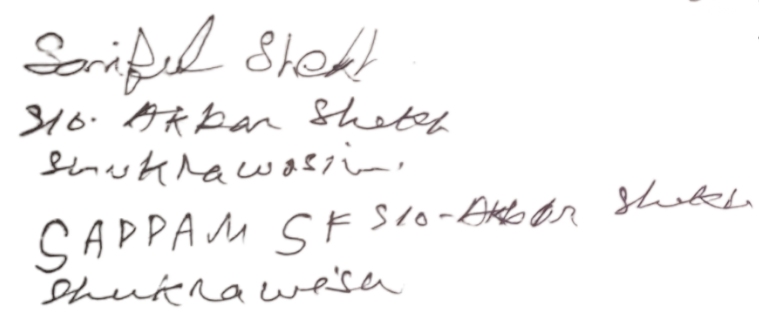 Sariful Shekh
S/o. Akbar Shekh
Shukrawasin.
SAPPAM SK S/o-Akbar Shekh
Shukrawesa